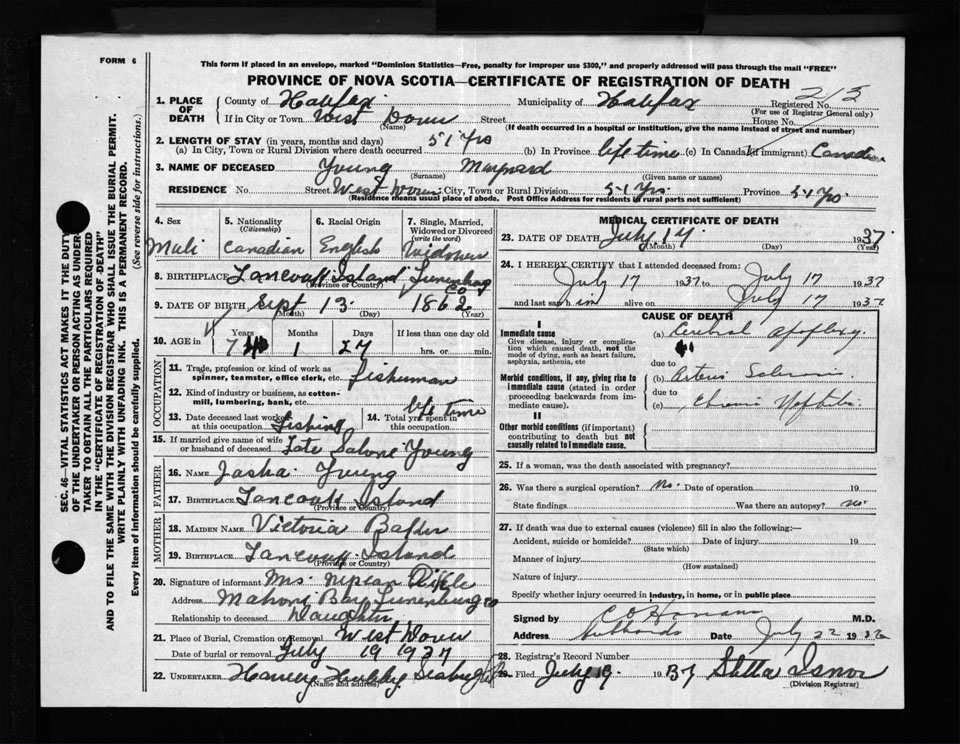 FORM 6
This form if placed in an envelope, marked "Dominion Statistics—Free, penalty for improper use $300," and properly addressed will pass through the mail "FREE"
PROVINCE OF NOVA SCOTIA—CERTIFICATE OF REGISTRATION OF DEATH
SEC. 46—VITAL STATISTICS ACT MAKES IT THE DUTY
OF THE UNDERTAKER OR PERSON ACTING AS UNDER-
TAKER TO OBTAIN ALL THE PARTICULARS REQUIRED
IN THE "CERTIFICATE OF REGISTRATION OF DEATH"
AND TO FILE THE SAME WITH THE DIVISION REGISTRAR WHO SHALL ISSUE THE BURIAL PERMIT.
WRITE PLAINLY WITH UNFADING INK. THIS IS A PERMANENT RECORD.
Every item of information should be carefully supplied. (See reverse side for instructions.)
1. PLACE OF DEATH County of Halifax Municipality of Halifax Registered No. 215
(For use of Registrar General only)
If in City or Town West Dover Street House No.
(Name) (If death occurred in a hospital or institution, give the name instead of street and number)
2. LENGTH OF STAY (in years, months and days)
(a) In City, Town or Rural Division where death occurred 51 Yrs (b) In Province life time (c) In Canada (if immigrant) Canadian
3. NAME OF DECEASED Young Maynard
(Surname) (Given name or names)
RESIDENCE No. Street West Dover City, Town or Rural Division 51 Yrs. Province 51 Yrs.
(Residence means usual place of abode. Post Office Address for residents in rural parts not sufficient)
4. Sex
Male
5. Nationality (Citizenship)
Canadian
6. Racial Origin
English
7. Single, Married, Widowed or Divorced (write the word)
Widower
8. BIRTHPLACE Tancook Island Lunenburg Co
(Province or Country)
9. DATE OF BIRTH Sept 13 1862
(Month) (Day) (Year)
10. AGE in Years Months Days If less than one day old
74 1 27 hrs. or min.
OCCUPATION
11. Trade, profession or kind of work as spinner, teamster, office clerk, etc. Fisherman
12. Kind of industry or business, as cotton-mill, lumbering, bank, etc.
13. Date deceased last worked at this occupation Fishing
14. Total yrs. spent in this occupation life time
15. If married give name of wife or husband of deceased Late Salone Young
FATHER
16. NAME Young
17. BIRTHPLACE Tancook Island
(Province or Country)
MOTHER
18. MAIDEN NAME Victoria
19. BIRTHPLACE Tancook Island
(Province or Country)
20. Signature of informant Mrs.
Address Mahone Bay Lunenburg Co
Relationship to deceased Daughter
21. Place of Burial, Cremation or Removal West Dover
Date of burial or removal July 19 1937
22. UNDERTAKER Harvey Hubley
(Name and address)
MEDICAL CERTIFICATE OF DEATH
23. DATE OF DEATH July 17 1937
(Month) (Day) (Year)
24. I HEREBY CERTIFY that I attended deceased from:
July 17 1937 to July 17 1937
and last saw him alive on July 17 1937
CAUSE OF DEATH
I
Immediate cause
Give disease, injury or complication which caused death, not the mode of dying, such as heart failure, asphyxia, asthenia, etc
(a) Cerebral apoplexy
due to
Morbid conditions, if any, giving rise to immediate cause (stated in order proceeding backwards from immediate cause).
(b) Arterio Sclerosis
due to
(c) Chronic Nephritis
II
Other morbid conditions (if important) contributing to death but not causally related to immediate cause.
25. If a woman, was the death associated with pregnancy?
26. Was there a surgical operation? No. Date of operation 19
State findings Was there an autopsy? no
27. If death was due to external causes (violence) fill in also the following:—
Accident, suicide or homicide? Date of injury 19
(State which)
Manner of injury
(How sustained)
Nature of injury
Specify whether injury occurred in industry, in home, or in public place
Signed by M.D.
Address Date July 22 1937
28. Registrar's Record Number
29. Filed July 19 1937 Stella Isnor
(Division Registrar)